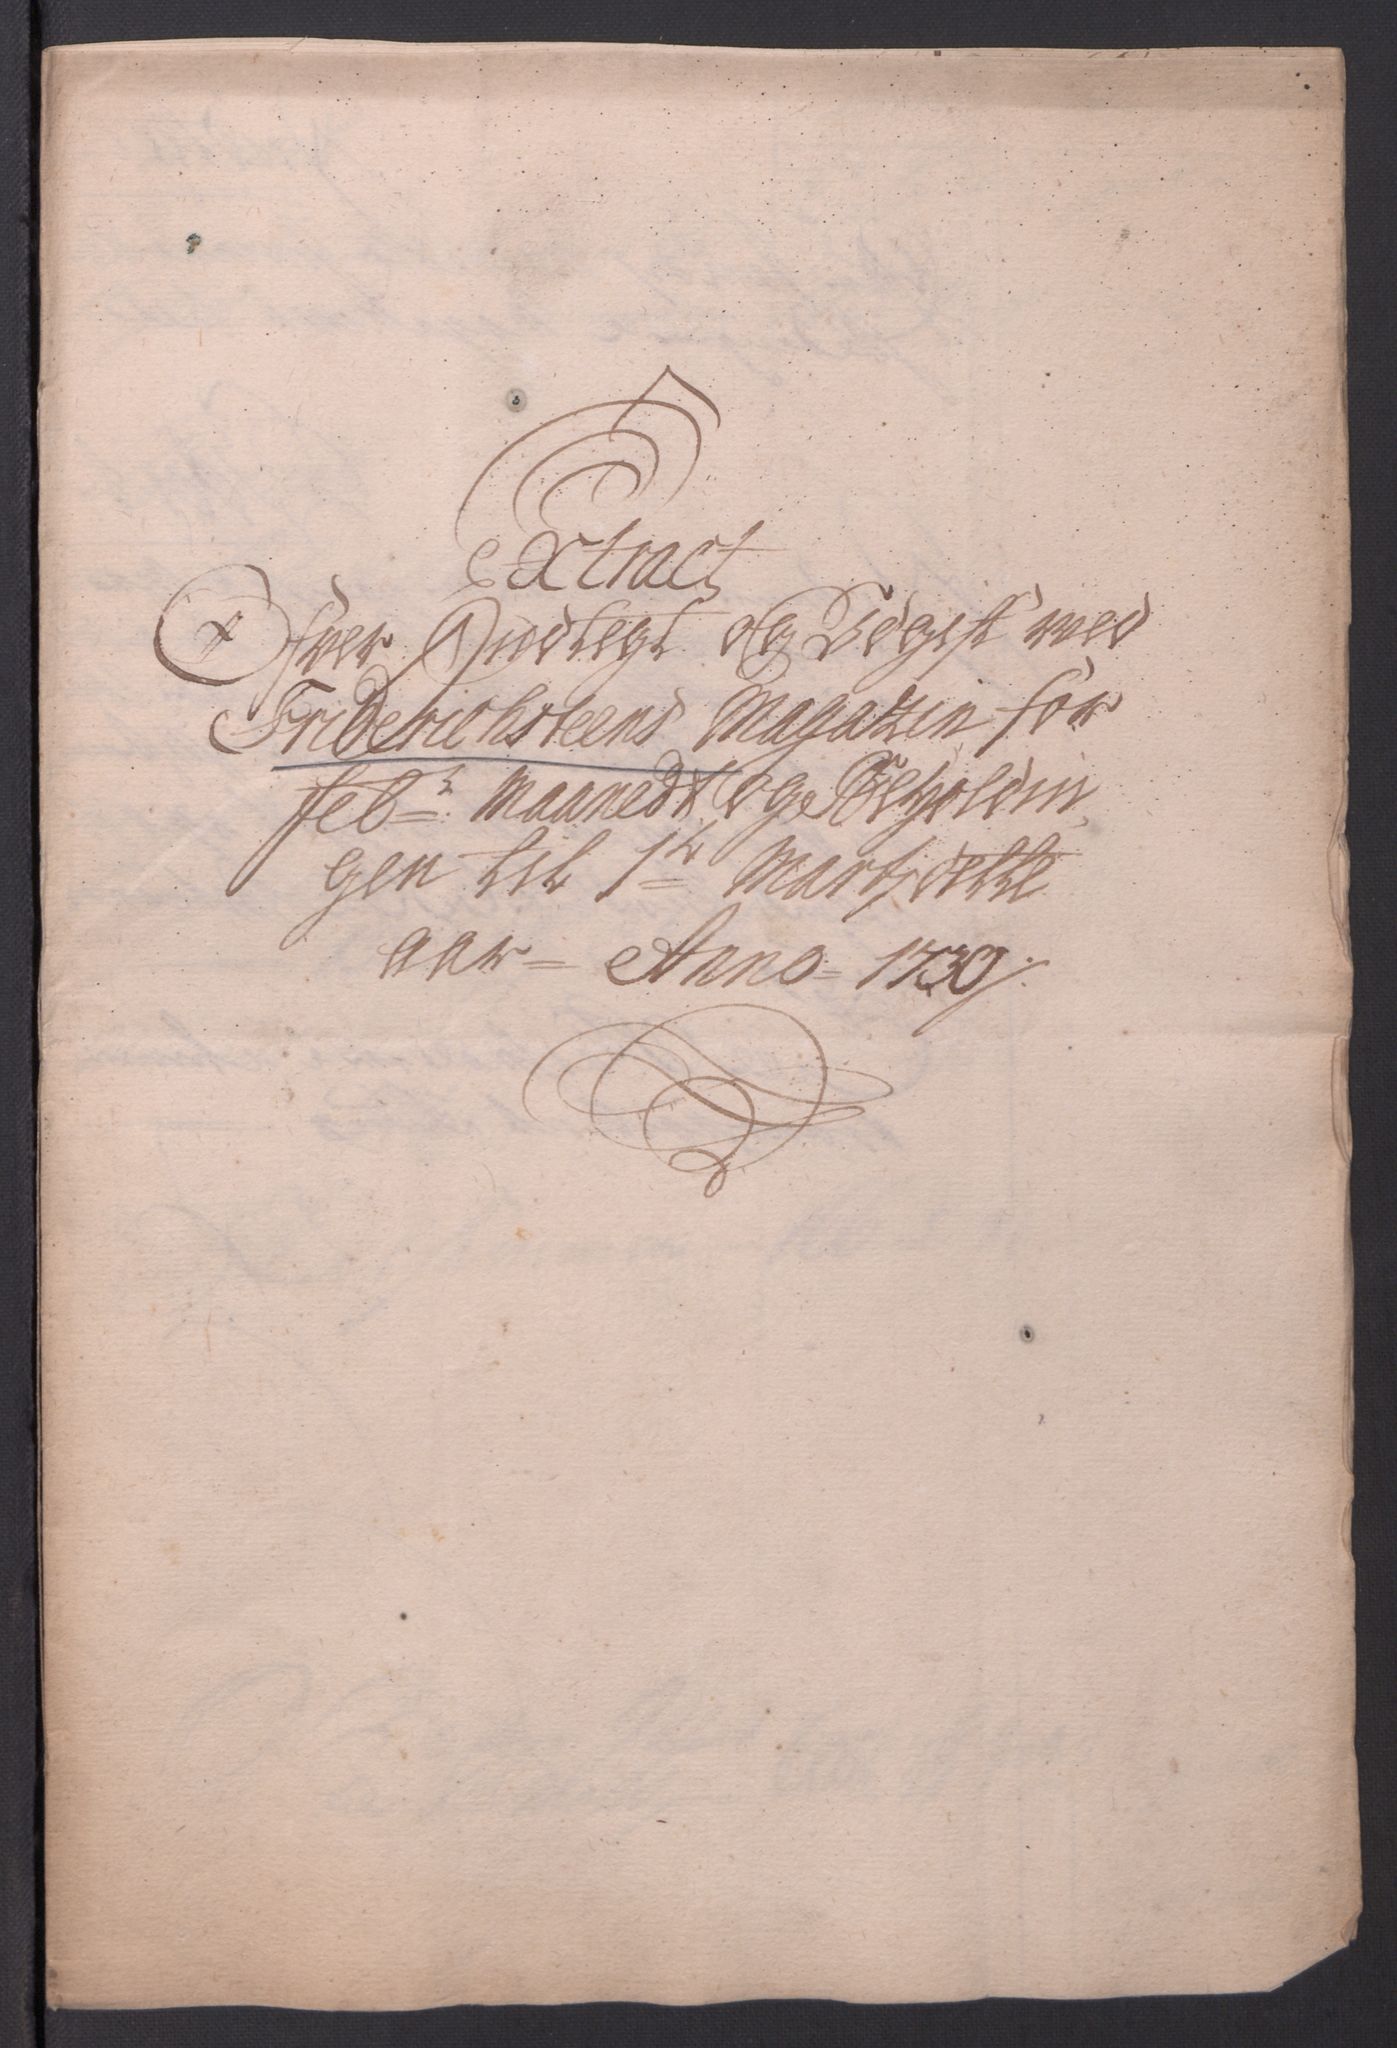 Extract
Ofver Indtegt og Udgift ved
Friderichsteens Magazin for
febr: Maanedt og Beholdin
gen til 1te Martj dette
aar = Anno = 1730.